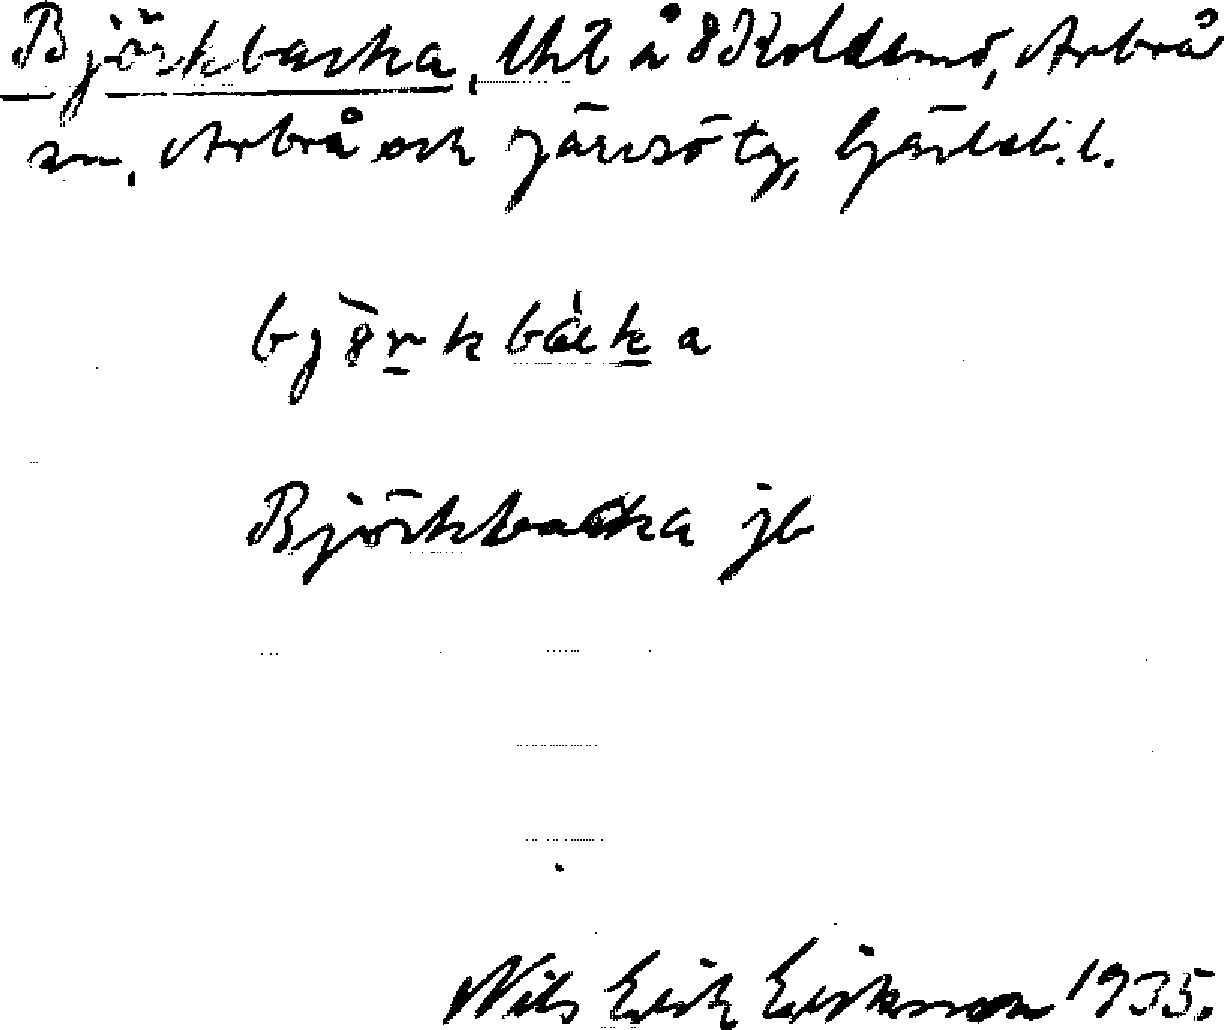 Björkbacka, Uhl å 8 Koldemo, Arbrå
sn, Arbrå och Järvsö tg, Gävleb. l.
björkbàcka
Björkbacka jb
Nils Erik Eriksson 1935.